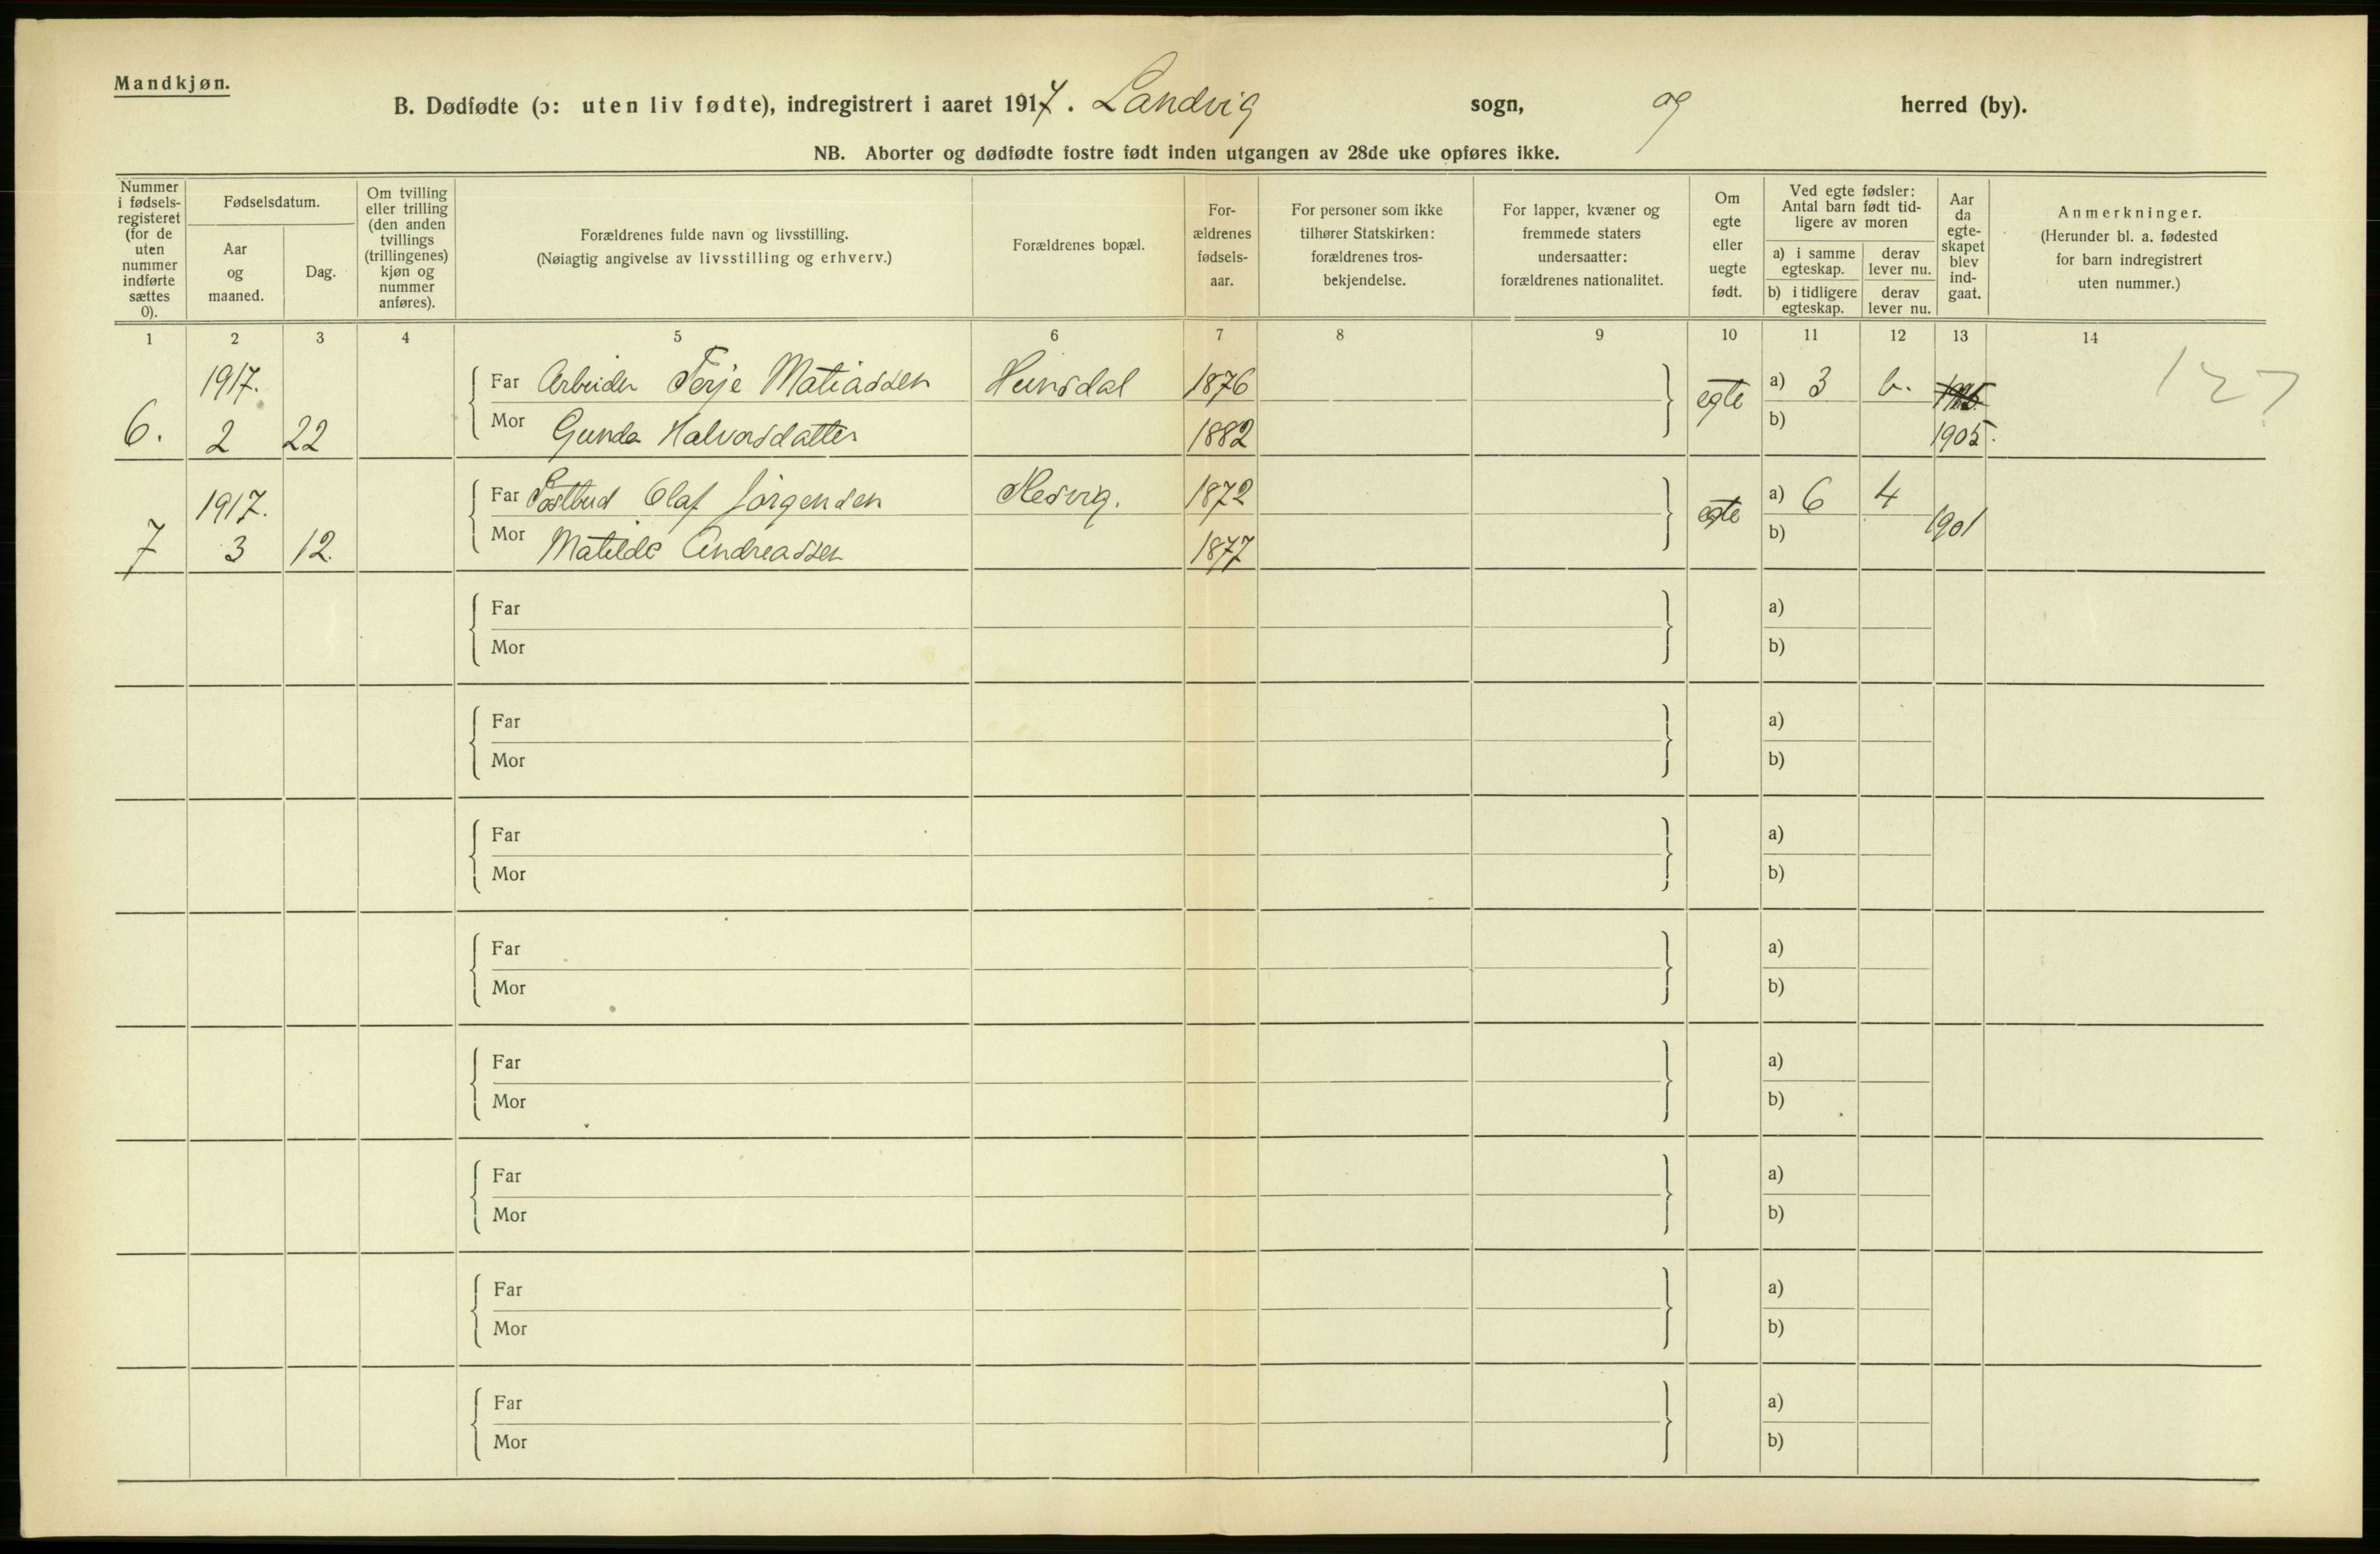 Mandkjøn.
B. Dødfødte (ɔ: uten liv fødte), indregistrert i aaret 1917. Landvig sogn, og herred (by).
NB. Aborter og dødfødte fostre født inden utgangen av 28de uke opføres ikke.
Nummer i fødselsregisteret (for de uten nummer indførte sættes 0).
Fødselsdatum.
Aar og maaned.
Dag.
Om tvilling eller trilling (den anden tvillings (trillingenes) kjøn og nummer anføres).
Forældrenes fulde navn og livsstilling.
(Nøiagtig angivelse av livsstilling og erhverv.)
Forældrenes bopæl.
Forældrenes fødselsaar.
For personer som ikke tilhører Statskirken: forældrenes trosbekjendelse.
For lapper, kvæner og fremmede staters undersaatter: forældrenes nationalitet.
Om egte eller uegte født.
Ved egte fødsler: Antal barn født tidligere av moren
a) i samme egteskap.
derav lever nu.
b) i tidligere egteskap.
derav lever nu.
Aar da egteskapet blev indgaat.
Anmerkninger.
(Herunder bl. a. fødested for barn indregistrert uten nummer.)
1 2 3 4 5 6 7 8 9 10 11 12 13 14
1917. Far Arbeider Terje Matiassen 1876 egte a) 3 127
6. 2 22 Mor Gunda Halvorsdatter 1882 b) 1905.
1917. Far Postbud Olaf Jörgensen 1872 egte a) 6 4 1901
7 3 12. Mor Matilde Andreassen 1877 b)
Far a)
Mor b)
Far a)
Mor b)
Far a)
Mor b)
Far a)
Mor b)
Far a)
Mor b)
Far a)
Mor b)
Far a)
Mor b)
Far a)
Mor b)